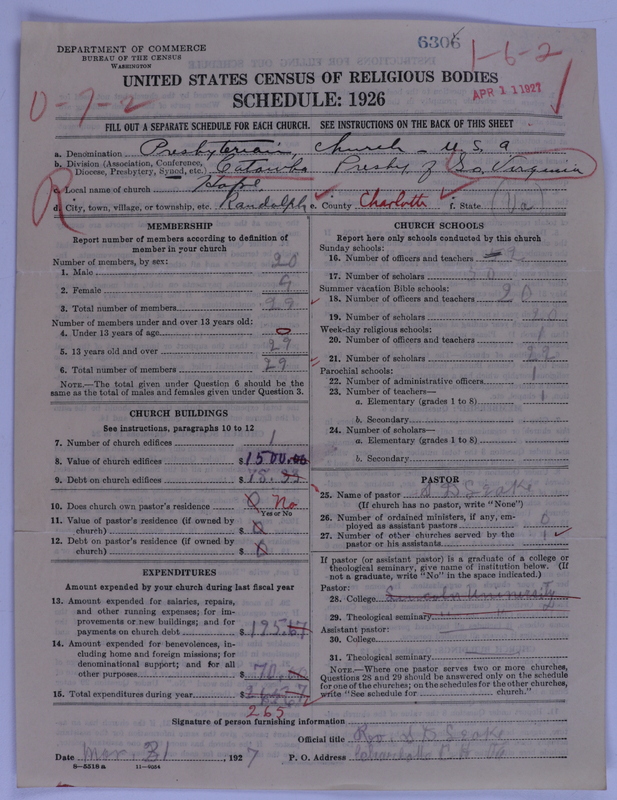 6306
1-6-2
DEPARTMENT OF COMMERCE
BUREAU OF THE CENSUS
WASHINGTON
UNITED STATES CENSUS OF RELIGIOUS BODIES
APR 11 1927
0-7-2
SCHEDULE: 1926
FILL OUT A SEPARATE SCHEDULE FOR EACH CHURCH. SEE INSTRUCTIONS ON THE BACK OF THIS SHEET
a. Denomination Presbyterian Church - U. S. a
b. Division (Association, Conference, Diocese, Presbytery, Synod, etc.) Catawba Presby of So. Virginia
R
c. Local name of church Hope
d. City, town, village, or township, etc. Randolph e. County Charlotte f. State Va
MEMBERSHIP
Report number of members according to definition of member in your church
Number of members, by sex:
1. Male 20
2. Female 9
3. Total number of members 29
Number of members under and over 13 years old:
4. Under 13 years of age 0
5. 13 years old and over 29
6. Total number of members 29
NOTE.—The total given under Question 6 should be the same as the total of males and females given under Question 3.
CHURCH BUILDINGS
See instructions, paragraphs 10 to 12
7. Number of church edifices 1
8. Value of church edifices $1500.00
9. Debt on church edifices $
10. Does church own pastor's residence No
Yes or No
11. Value of pastor's residence (if owned by church) $ 0
12. Debt on pastor's residence (if owned by church) $ 0
EXPENDITURES
Amount expended by your church during last fiscal year
13. Amount expended for salaries, repairs, and other running expenses; for improvements or new buildings; and for payments on church debt $195.67
14. Amount expended for benevolences, including home and foreign missions; for denominational support; and for all other purposes $70.00
15. Total expenditures during year $265.67
265
CHURCH SCHOOLS
Report here only schools conducted by this church
Sunday schools:
16. Number of officers and teachers 2
17. Number of scholars 30
Summer vacation Bible schools:
18. Number of officers and teachers 2 0
19. Number of scholars 20
Week-day religious schools:
20. Number of officers and teachers 1
21. Number of scholars 22
Parochial schools:
22. Number of administrative officers 1
23. Number of teachers—
a. Elementary (grades 1 to 8) 1
b. Secondary
24. Number of scholars—
a. Elementary (grades 1 to 8)
b. Secondary
PASTOR
25. Name of pastor
(If church has no pastor, write "None")
26. Number of ordained ministers, if any, employed as assistant pastors 0
27. Number of other churches served by the pastor or his assistants 1
If pastor (or assistant pastor) is a graduate of a college or theological seminary, give name of institution below. (If not a graduate, write "No" in the space indicated.)
Pastor:
28. College Lincoln University
29. Theological seminary
Assistant pastor:
30. College
31. Theological seminary
NOTE.—Where one pastor serves two or more churches, Questions 28 and 29 should be answered only on the schedule for one of the churches; on the schedules for the other churches, write "See schedule for church."
Signature of person furnishing information
Official title Rev.
Date Mar. 31, 1927 P. O. Address Va
8-5318 a 11-9554